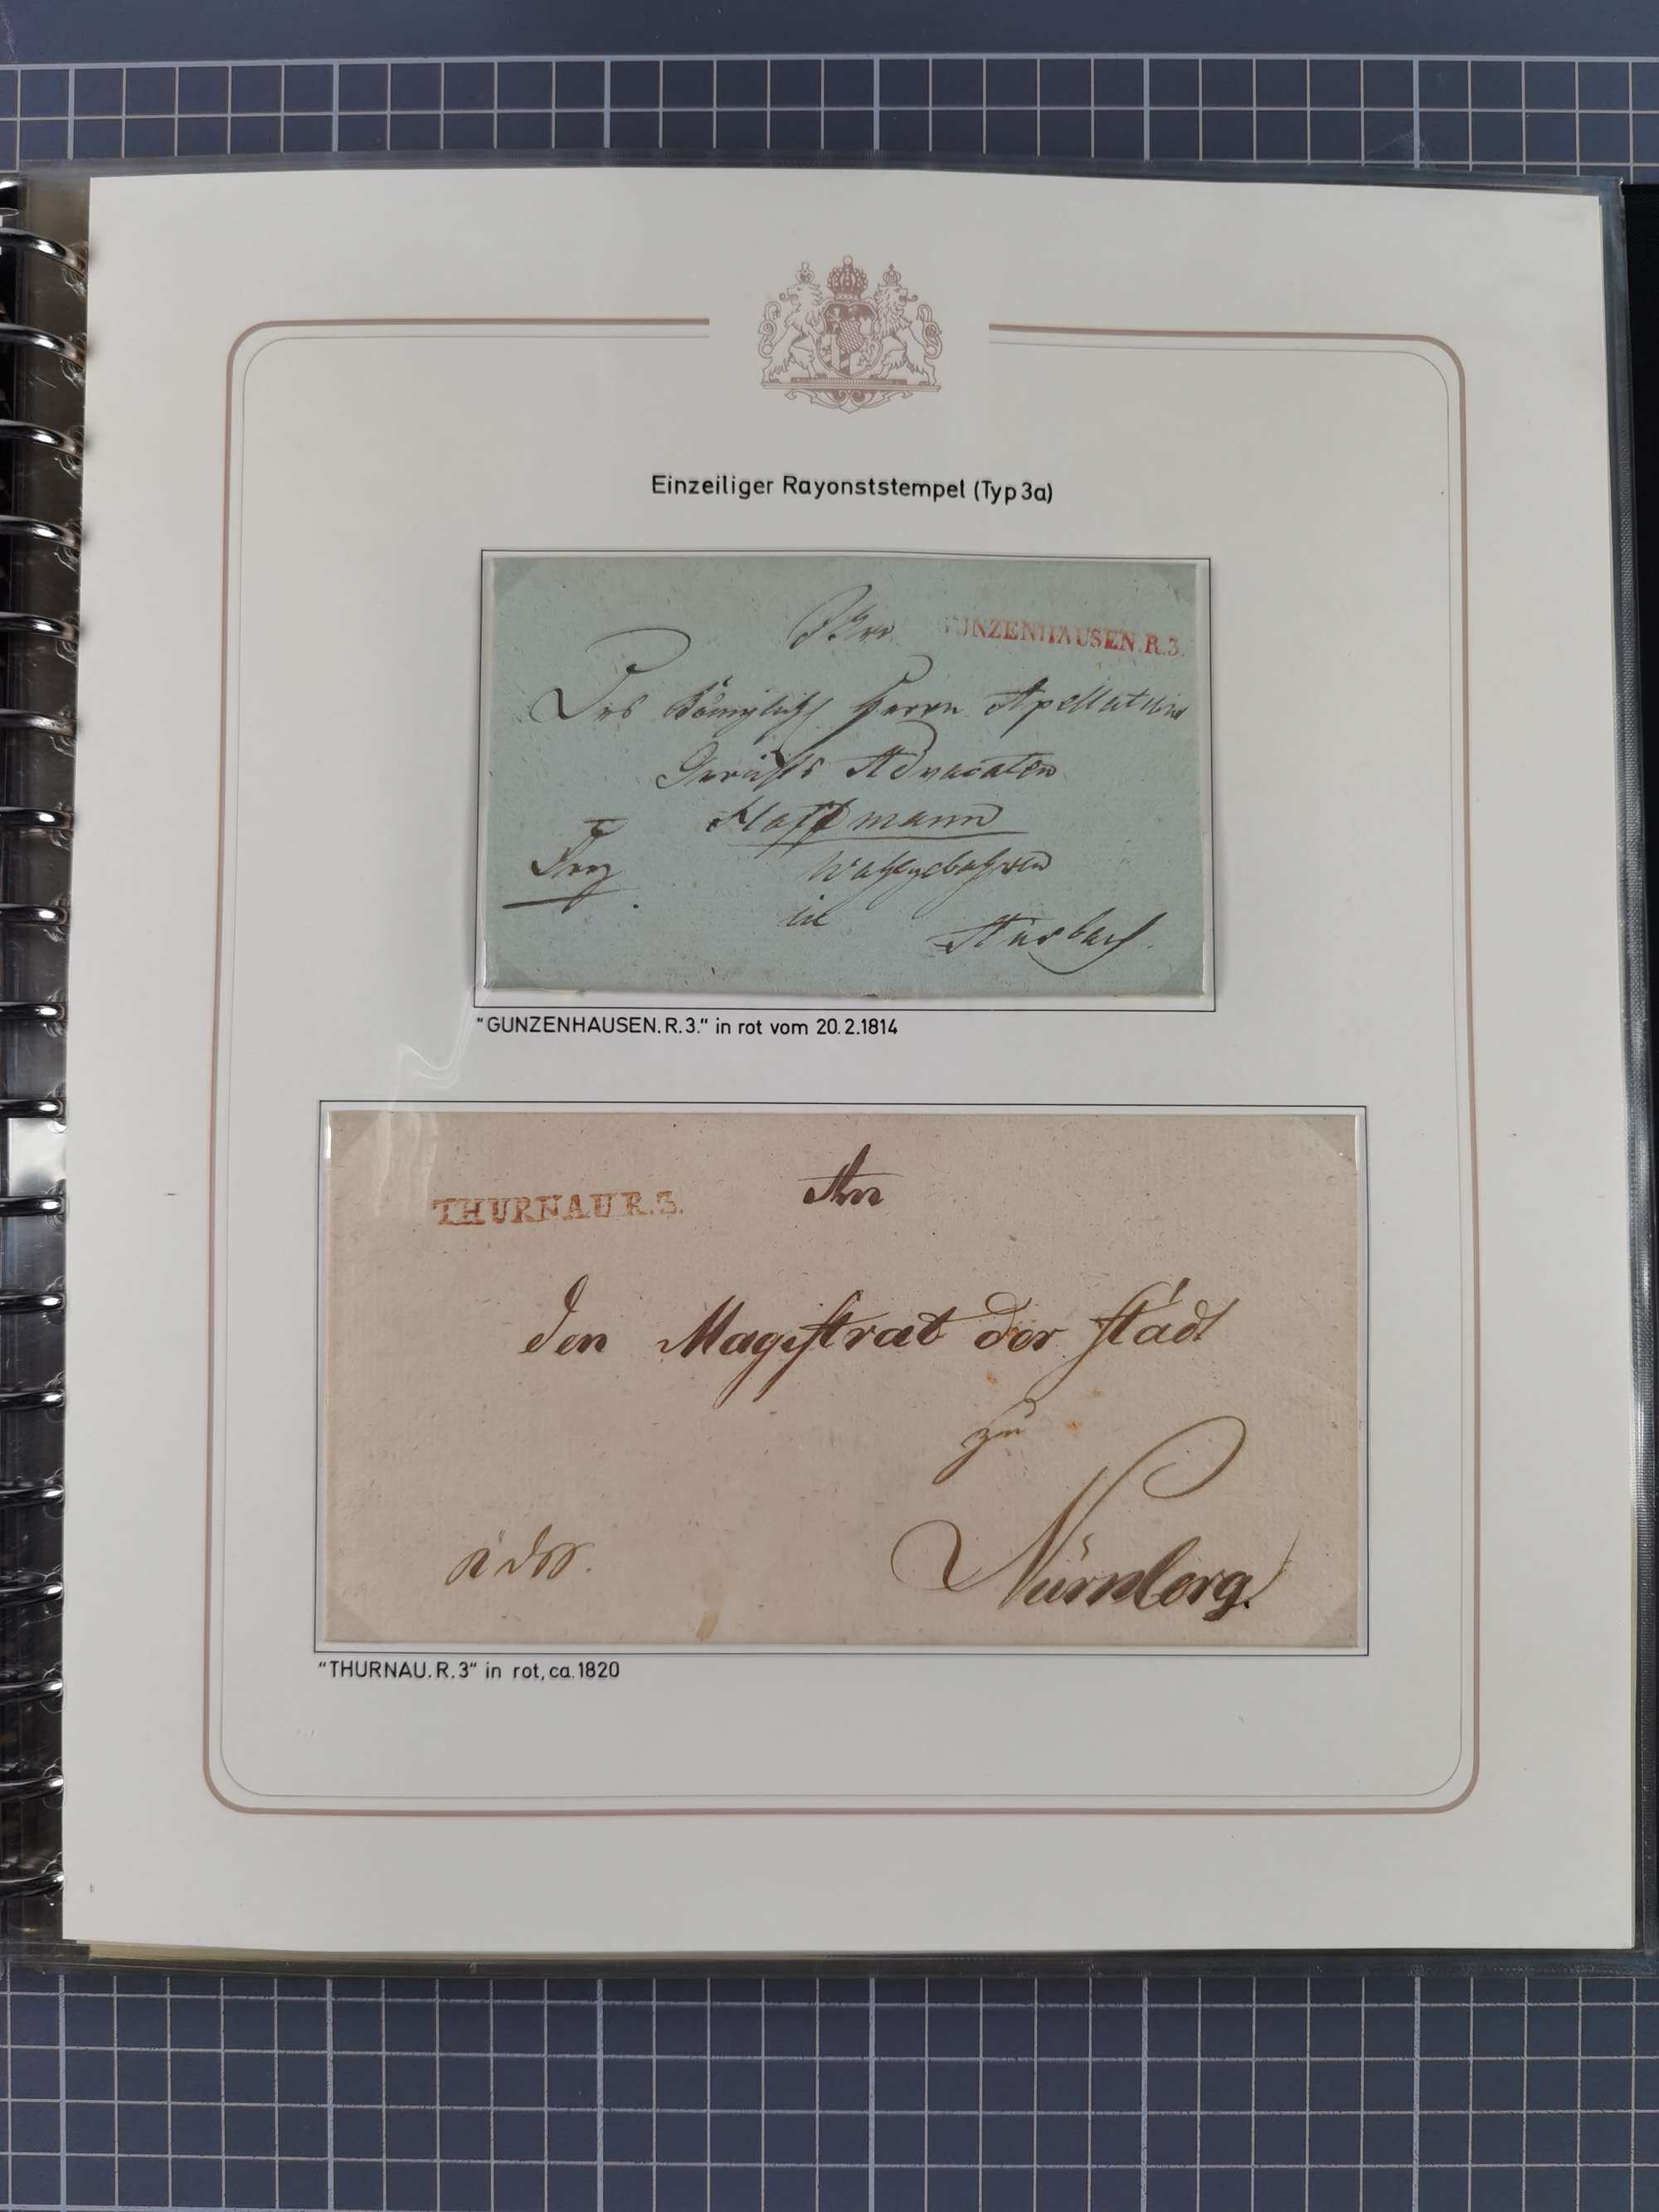 Einzeiliger Rayonststempel (Typ 3a)
GUNZENHAUSEN.R.3.
Des Königlich Herrn Apellations
Gerichts Advocaten
Hoffmann
Wohlgebohren
in
Ansbach.
"GUNZENHAUSEN.R.3." in rot vom 20.2.1814
THURNAU R.3.
An
den Magistrat der Stadt
zu
Nürnberg.
"THURNAU.R.3" in rot, ca. 1820